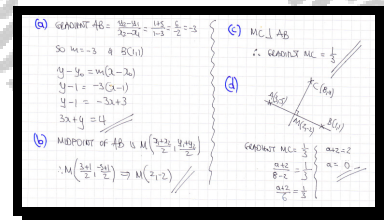 (a) GRADIENT AB = y₂-y₁/x₂-x₁ = 1+5/1-3 = 6/-2 = -3
SO m=-3 & B(1,1)
y-y₀ = m(x-x₀)
y-1 = -3(x-1)
y-1 = -3x+3
3x+y = 4
(b) MIDPOINT OF AB IS M(x₁+x₂/2, y₁+y₂/2)
∴ M(3+1/2, -5+1/2) ⇒ M(2,-2)
(c) MC ⊥ AB
∴ GRADIENT MC = 1/3
(d)
C(8,a)
A(3,-5)
M(2,-2)
B(1,1)
GRADIENT MC = 1/3
a+2/8-2 = 1/3
a+2/6 = 1/3
a+2=2
a=0